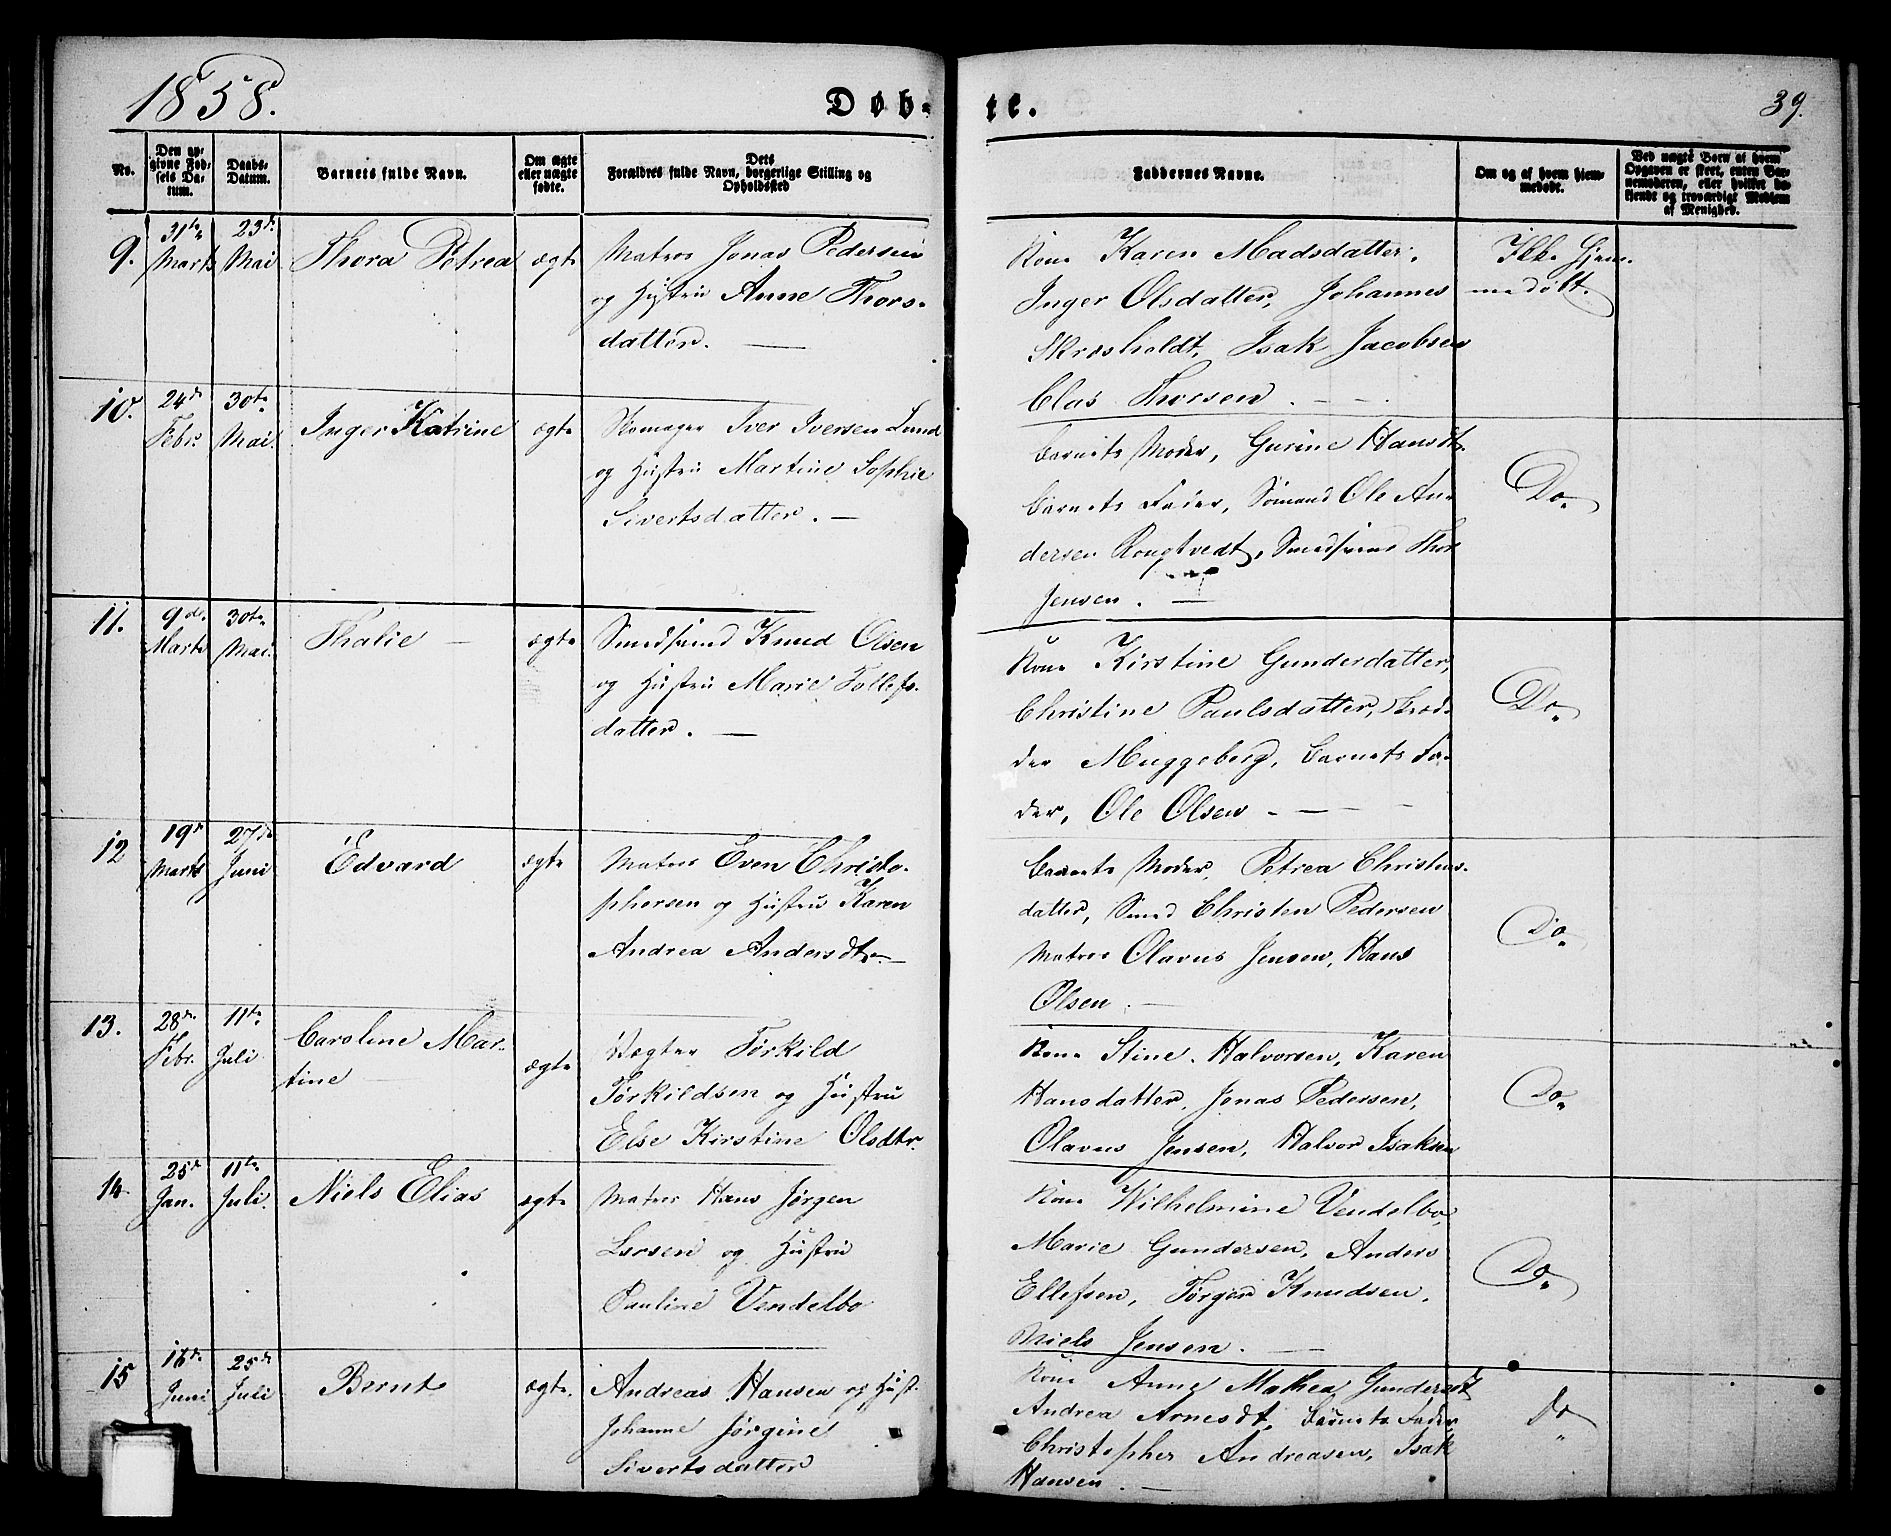 1858.
Døb-
te.
39.
No.
Den op-
givne Fød-
sels Da-
tum.
Daabs-
Datum.
Barnets fulde Navn.
Om ægte
eller uægte
fødte.
Dets
Forældres fulde Navn, borgerlige Stilling og
Opholdssted
Faddernes Navne.
Om og af hvem hjem-
medøbt.
Ved uægte Børn af hvem
Opgaven er skeet, enten Bar-
nemoderen, eller hvilket be-
kjendt og troværdigt Medlem
af Menighed.
9.
31te
Marts
23de
Mai
Thora Petrea
ægte
Matros Jonas Pedersen
og Hustru Anne Thors-
datter.
Kone Karen Madsdatter,
Inger Olsdatter, Johannes
Skrosholdt, Isak Jacobsen
Clas Thorsen.
Ikke hjem-
medøbt.
10.
24de
Febr.
30te
Mai.
Inger Katrine
ægte
Skomager Iver Iversen Lund
og Hustru Martine Sophie
Sivertsdatter.
Barnets Moder, Gurine Hansdt.
Barnets Fader, Sømand Ole An-
dersen Rongtvedt, Smedsvend Thor
Jensen.
Do.
11.
9de
Marts
30te
Mai.
Thalie
ægte
Smedsvend Knud Olsen
og Hustru Marie Tollefs-
datter.
Kone Kirstine Gunderdatter,
Christine Paulsdatter,
Muggeberg, Barnets Fa-
der, Ole Olsen
Do.
12
19de
Marts
27de
Juni
Edvard
ægte
Matros Even Christo-
phersen og Hustru Karen
Andrea Andersdtr.
Barnets Moder, Petrea Christens-
datter, Smed Christen Pedersen
Matros Olavus Jensen, Hans
Olsen.
Do.
13.
28de
Febr.
11te
Juli
Caroline Mar-
tine
ægte
Vægter Tørkild
Tørkildsen og Hustru
Else Kirstine Olsdtr.
Kone Stine Halvorsen, Karen
Hansdatter, Jonas Pedersen,
Olavus Jensen, Halvor Isaksen
Do.
14.
25de
Jan.
11te
Juli.
Niels Elias
ægte
Matros Hans Jørgen
Larsen og Hustru
Pauline Vendelbo
Kone Wilhelmine Vendelbo,
Marie Gundersen, Anders
Ellefsen, Tørger Knudsen,
Niels Jensen.
Do.
15
16de
Juni
25de
Juli
Bernt
ægte.
Andreas Hansen og Hust.
Johanne Jørgine
Sivertsdatter
Kone Anne Mathea Gundersdt
Andrea Arnesdt, Barnets Fader,
Christopher Andreasen, Isak
Hansen.
Do